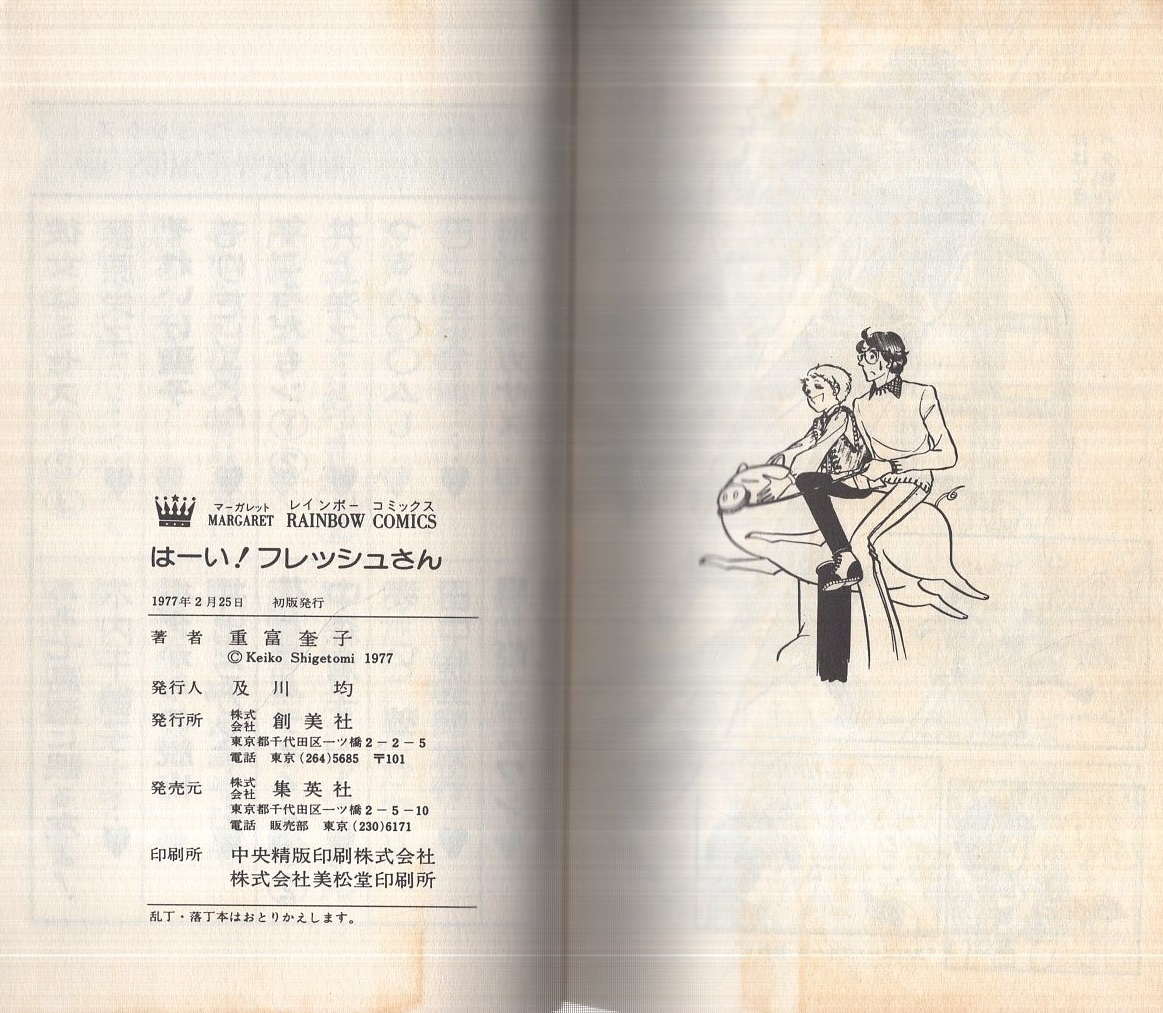 マーガレット レインボー コミックス
MARGARET RAINBOW COMICS
はーい!フレッシュさん
1977年2月25日 初版発行
著者 重富奎子
©Keiko Shigetomi 1977
発行人 及川 均
発行所 株式会社 創美社
東京都千代田区一ツ橋2-2-5
電話 東京(264)5685 〒101
発売元 株式会社 集英社
東京都千代田区一ツ橋2-5-10
電話 販売部 東京(230)6171
印刷所 中央精版印刷株式会社
株式会社美松堂印刷所
乱丁・落丁本はおとりかえします。